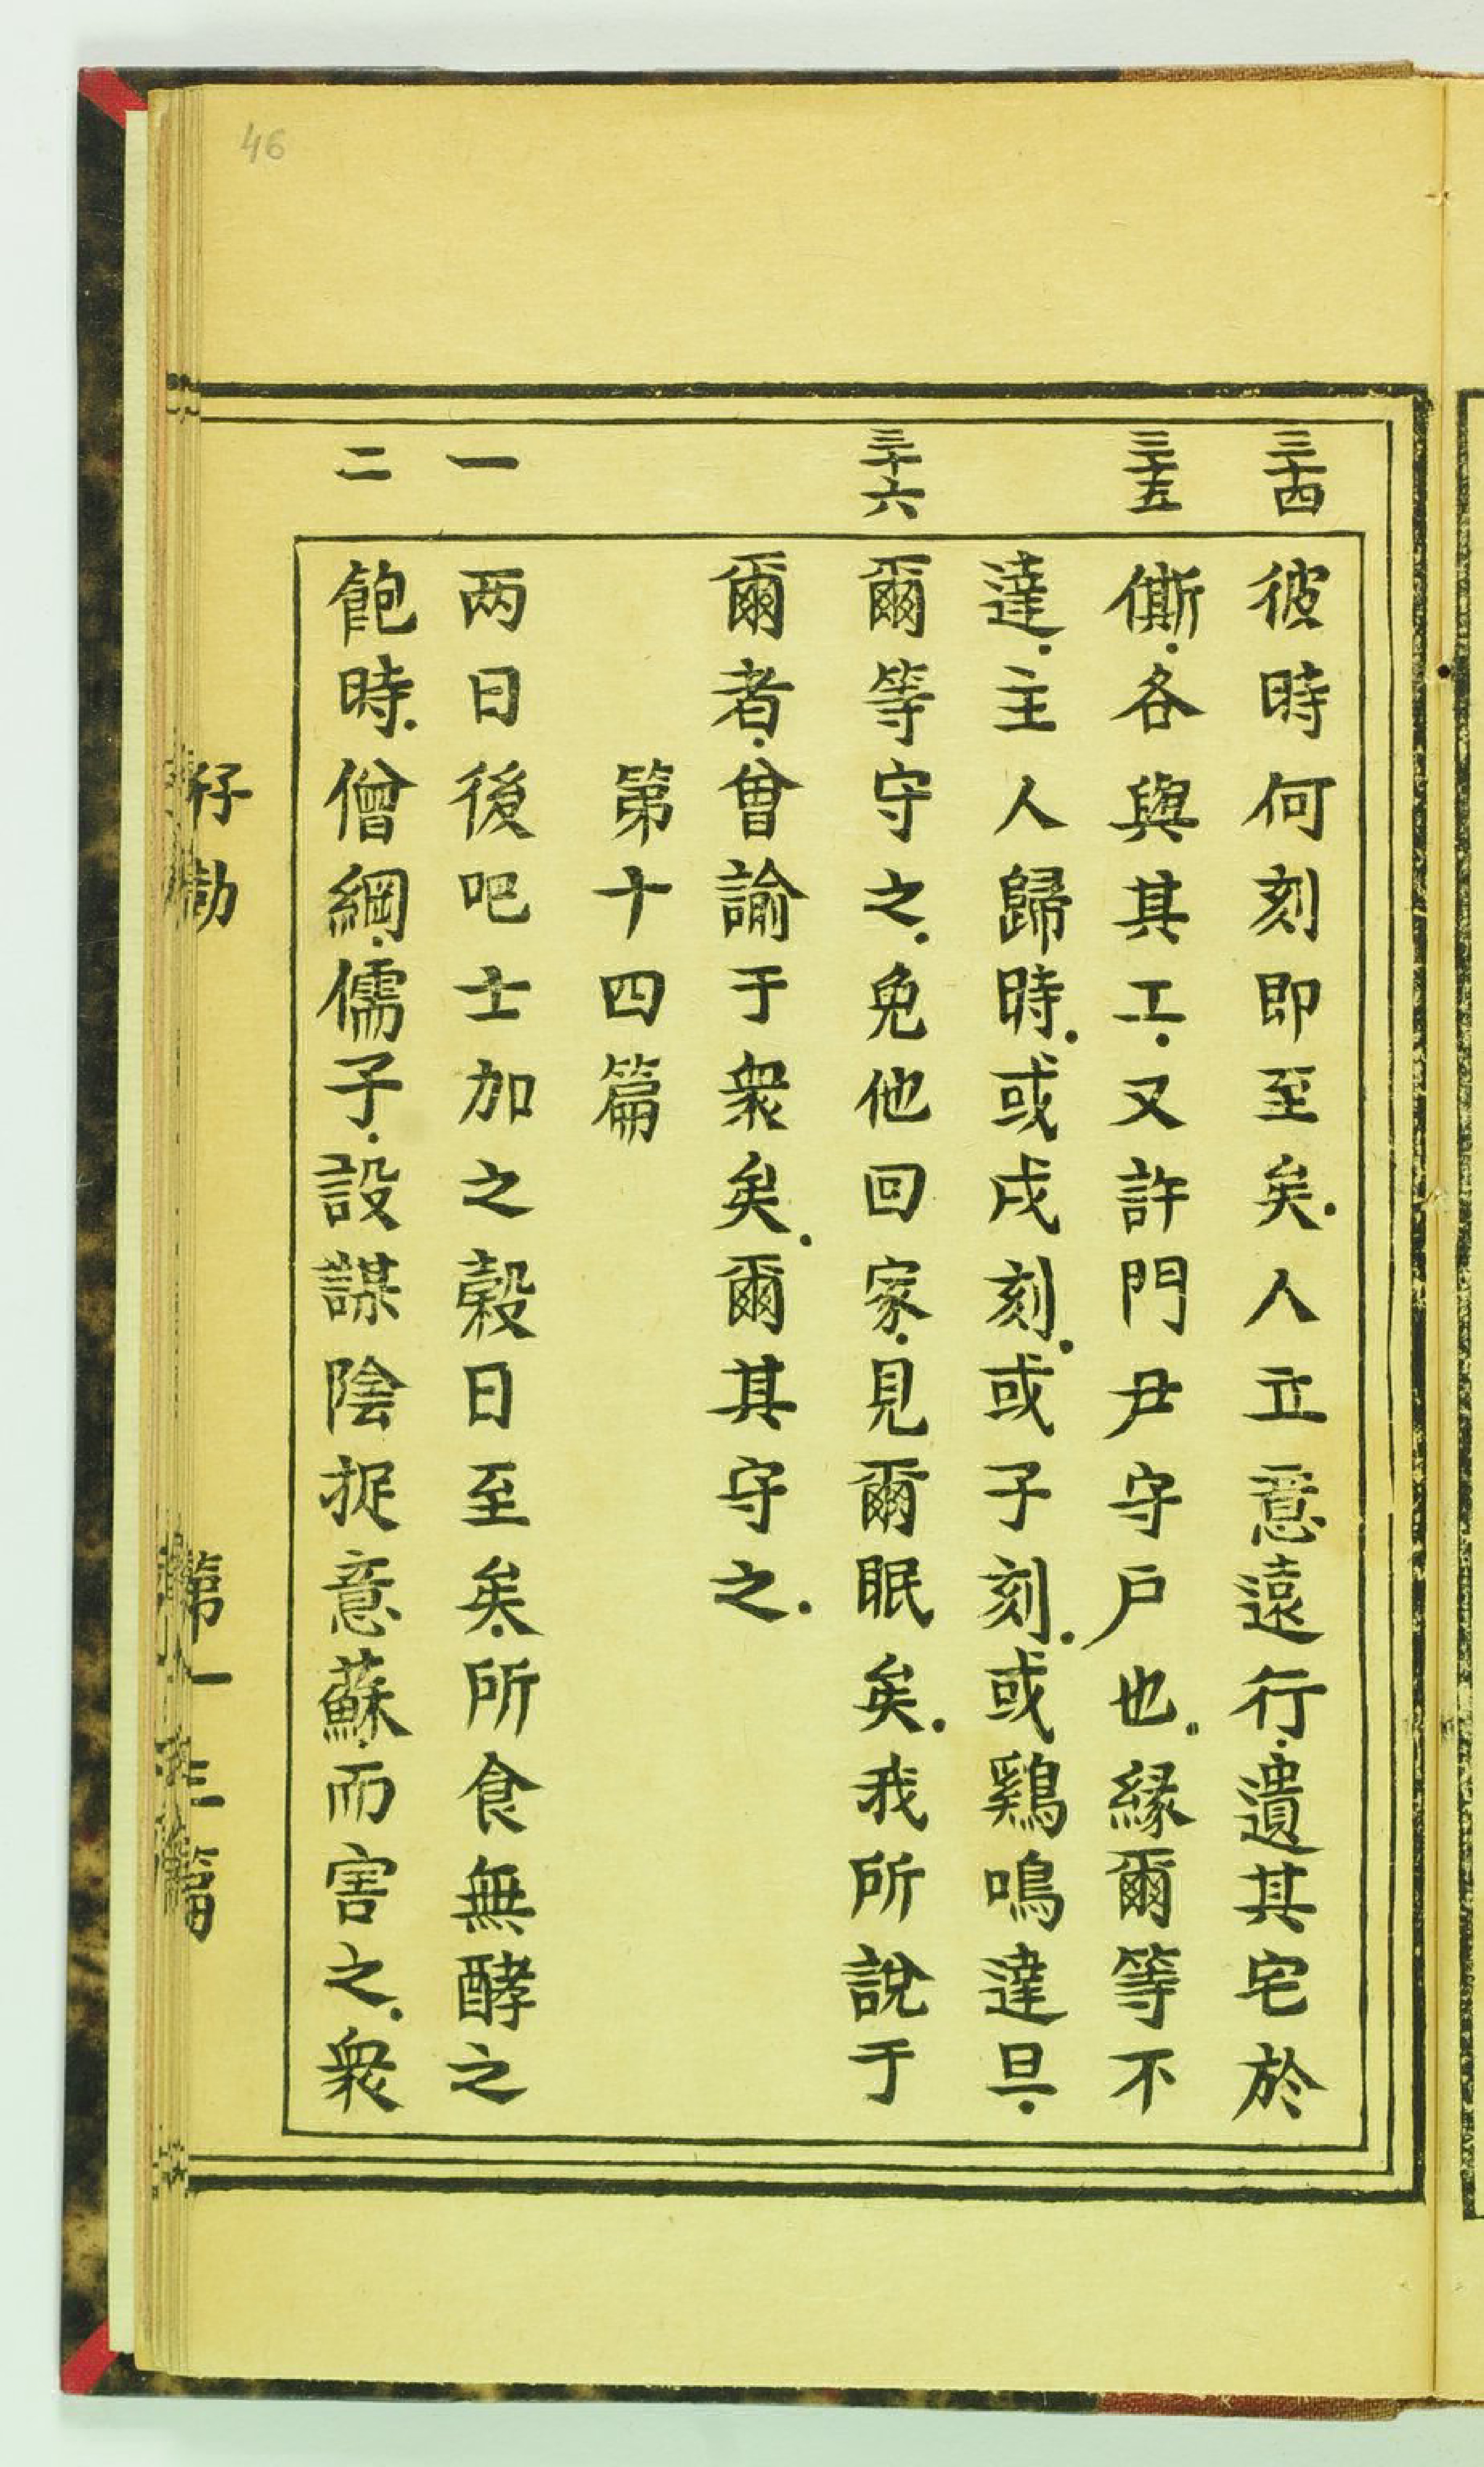 46
三十四
彼時何刻即至矣.人立意遠行.遺其宅於
三十五
傂.各與其工.又許門尹守戶也.緣爾等不
達.主人歸時.或戌刻.或子刻.或鷄鳴達旦.
三十六
爾等守之.免他回家.見爾眠矣.我所說于
爾者.曾諭于衆矣.爾其守之.
第十四篇
一
两日後吧士加之穀日至矣.所食無酵之
二
飽時.僧綱.儒子.設謀陰捉意蘇.而害之.衆